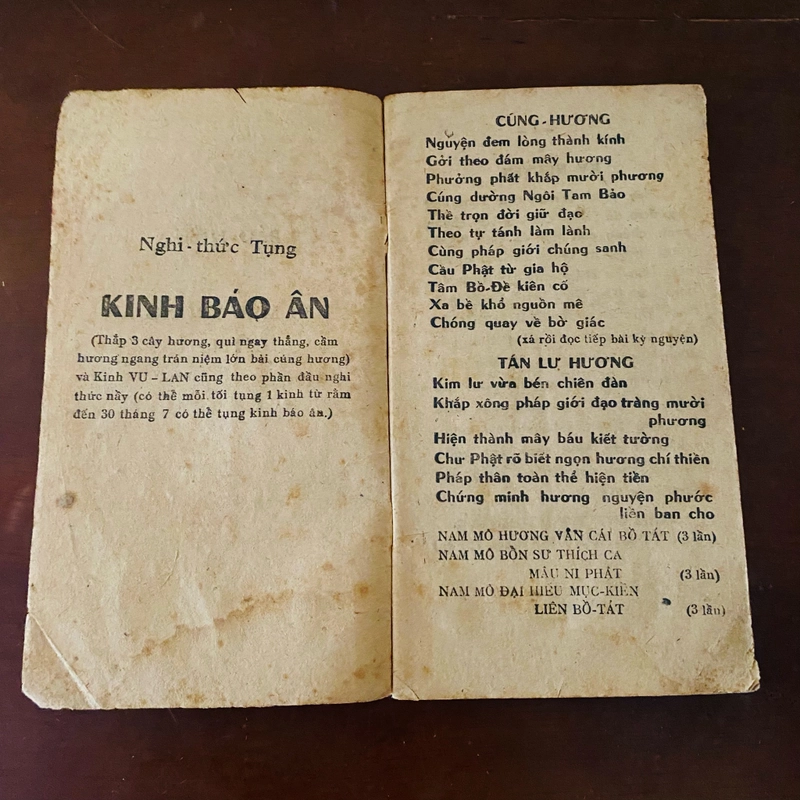 Nghi-thức Tụng
KINH BÁO ÂN
(Thắp 3 cây hương, quì ngay thẳng, cầm
hương ngang trán niệm lớn bài cúng hương)
và Kinh VU - LAN cũng theo phần đầu nghi
thức nầy (có thể mỗi tối tụng 1 kinh từ rằm
đến 30 tháng 7 có thể tụng kinh báo ân.)
CÚNG-HƯƠNG
Nguyện đem lòng thành kính
Gởi theo đám mây hương
Phưởng phất khắp mười phương
Cúng dường Ngôi Tam Bảo
Thề trọn đời giữ đạo
Theo tự tánh làm lành
Cùng pháp giới chúng sanh
Cầu Phật từ gia hộ
Tâm Bồ-Đề kiên cố
Xa bề khổ nguồn mê
Chóng quay về bờ giác
(xá rồi đọc tiếp bài kỳ nguyện)
TÁN LƯ HƯƠNG
Kim lư vừa bén chiên đàn
Khắp xông pháp giới đạo tràng mười
phương
Hiện thành mây báu kiết tường
Chư Phật rõ biết ngọn hương chí thiền
Pháp thân toàn thể hiện tiền
Chứng minh hương nguyện phước
liền ban cho
NAM MÔ HƯƠNG VÂN CÁI BỒ TÁT (3 lần)
NAM MÔ BỒN SƯ THÍCH CA
MÂU NI PHẬT (3 lần)
NAM MÔ ĐẠI HIẾU MỤC-KIỀN
LIÊN BỒ-TÁT (3 lần)